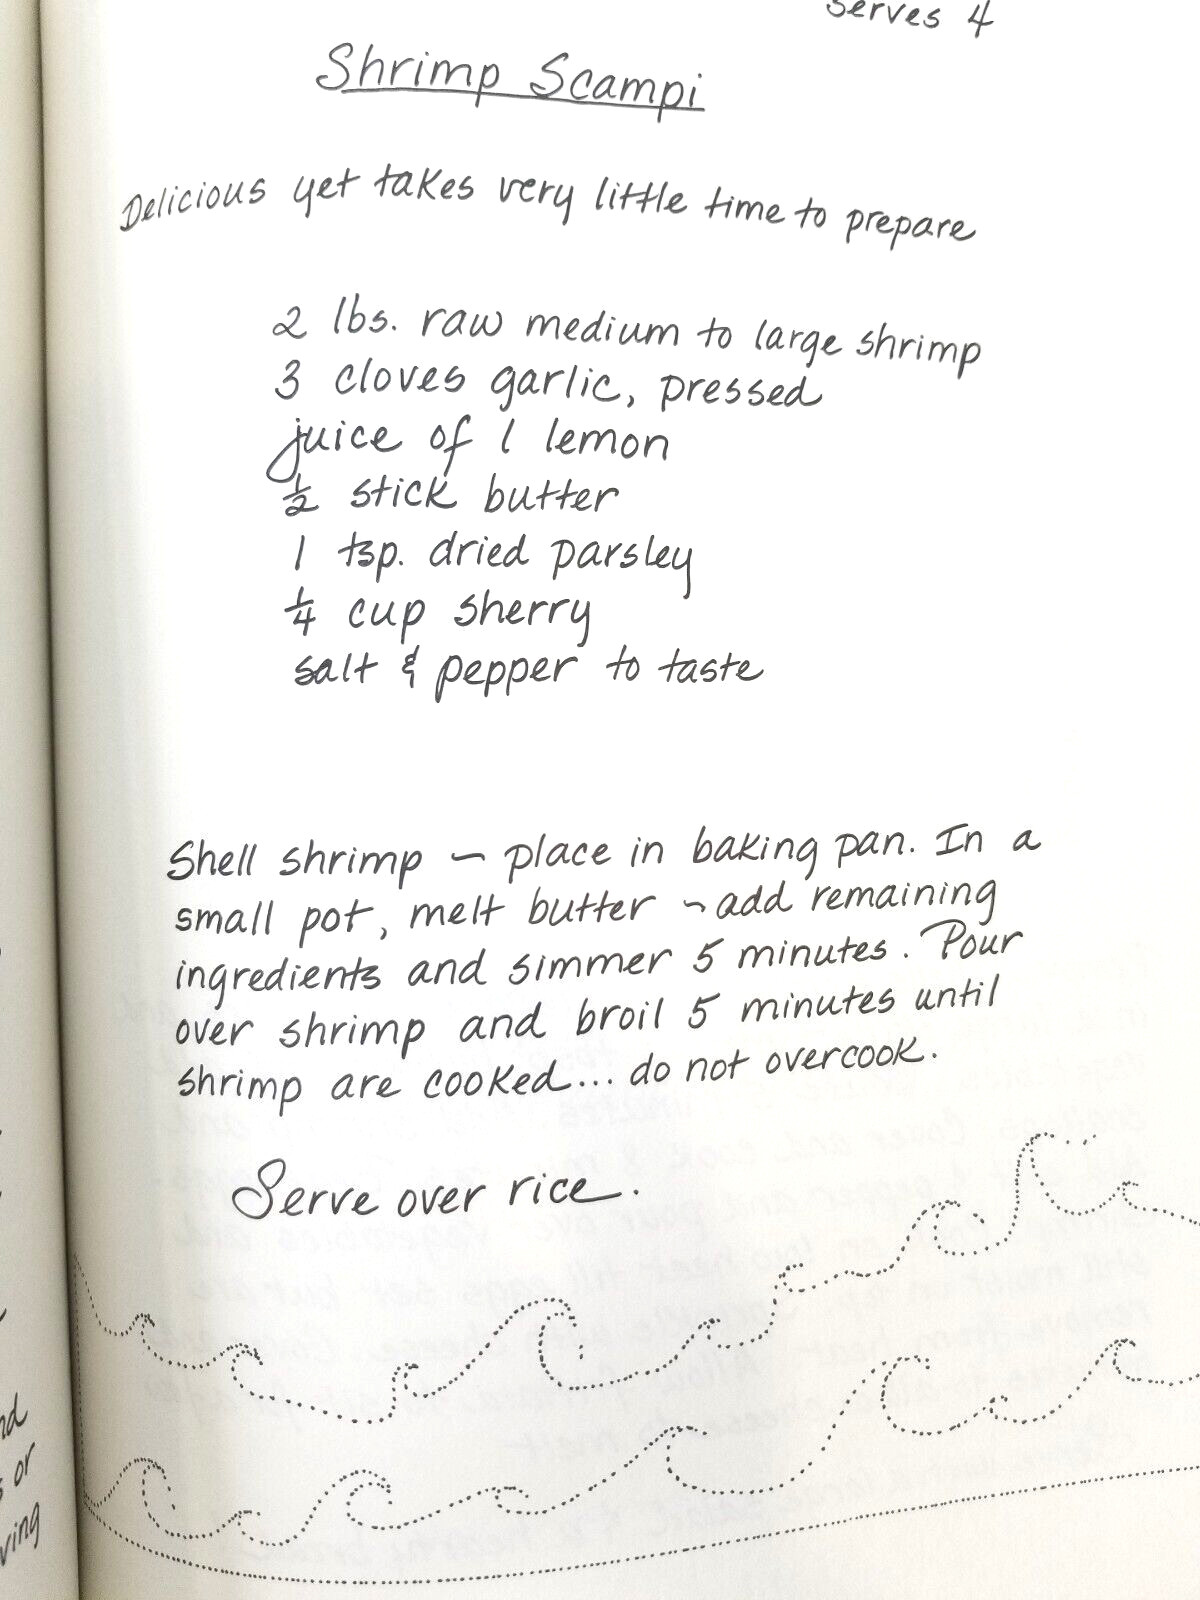 Serves 4
Shrimp Scampi
Delicious yet takes very little time to prepare
2 lbs. raw medium to large shrimp
3 cloves garlic, pressed
juice of 1 lemon
½ stick butter
1 tsp. dried parsley
¼ cup sherry
salt & pepper to taste
Shell shrimp ~ place in baking pan. In a
small pot, melt butter ~ add remaining
ingredients and simmer 5 minutes. Pour
over shrimp and broil 5 minutes until
shrimp are cooked... do not overcook.
Serve over rice.
or